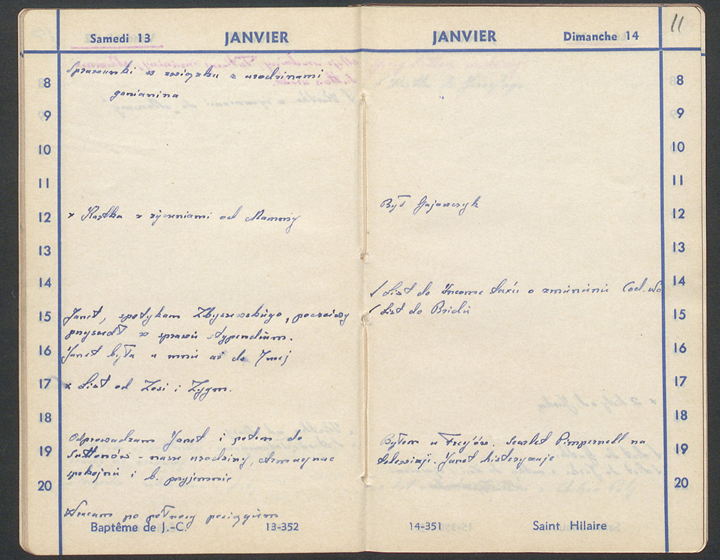 Samedi 13 JANVIER
8
9
10
11
12
13
14
15
16
17
18
19
20
Sprawunki w związku z urodzinami
x Kartka z życzeniami od Mamusi
Janet, spotykam Zbyszewskiego, poczciwy
przyszedł w sprawie stypendium.
Janet była u mnie aż do 7mej
x List od Zosi i Zygm.
Odprowadzam Janet i potem do
Suttonów - nasze urodziny,
spokojnie i b. przyjemnie
Wracam po północy pociągiem
Baptême de J.-C. 13-352
JANVIER Dimanche 14 11
8
9
10
11
12
13
14
15
16
17
18
19
20
Był Gajewczyk
/ List do Income Tax'u o zmianie
/ List do
Byłem u Frey'ów. Scarlet Pimpernell na
telewizji. Janet histeryzuje
14-351 Saint Hilaire